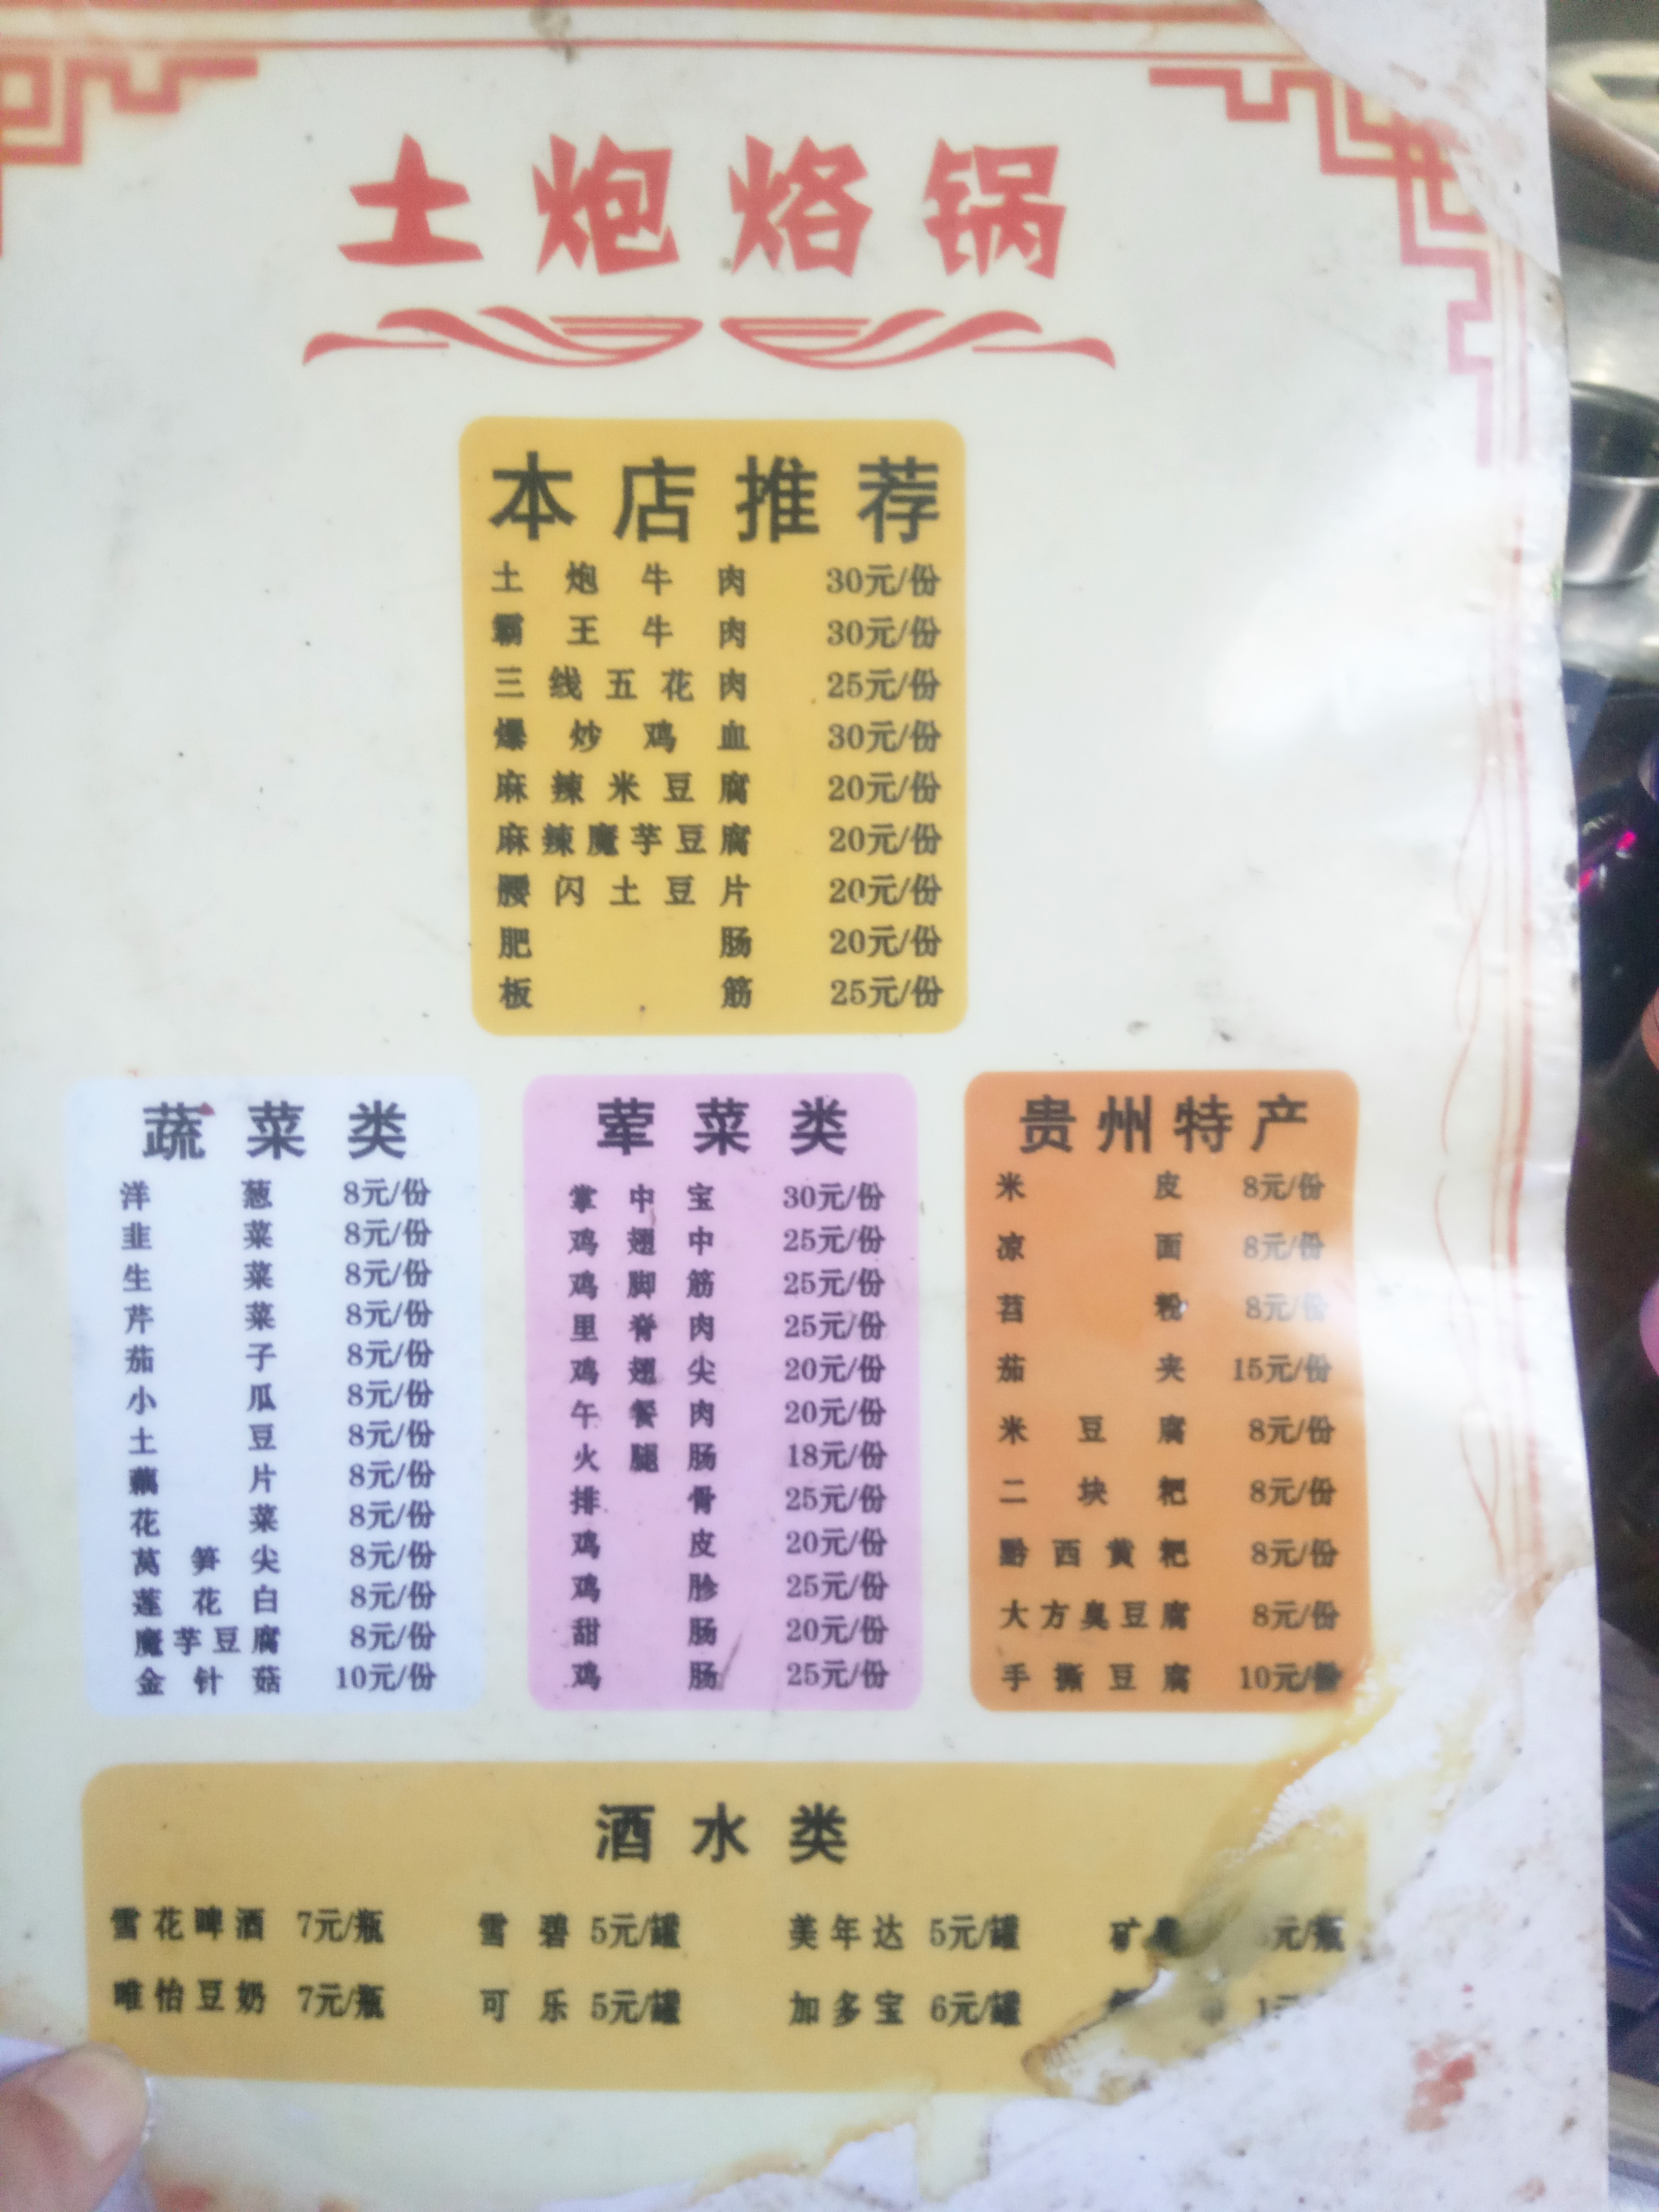 土炮烙锅
本店推荐
土炮牛肉 30元/份
霸王牛肉 30元/份
三线五花肉 25元/份
爆炒鸡血 30元/份
麻辣米豆腐 20元/份
麻辣魔芋豆腐 20元/份
腰闪土豆片 20元/份
肥肠 20元/份
板筋 25元/份
蔬菜类
洋葱 8元/份
韭菜 8元/份
生菜 8元/份
芹菜 8元/份
茄子 8元/份
小瓜 8元/份
土豆 8元/份
藕片 8元/份
花菜 8元/份
莴笋尖 8元/份
莲花白 8元/份
魔芋豆腐 8元/份
金针菇 10元/份
荤菜类
掌中宝 30元/份
鸡翅中 25元/份
鸡脚筋 25元/份
里脊肉 25元/份
鸡翅尖 20元/份
午餐肉 20元/份
火腿肠 18元/份
排骨 25元/份
鸡皮 20元/份
鸡胗 25元/份
甜肠 20元/份
鸡肠 25元/份
贵州特产
米皮 8元/份
凉面 8元/份
苕粉 8元/份
茄夹 15元/份
米豆腐 8元/份
二块粑 8元/份
黔西黄粑 8元/份
大方臭豆腐 8元/份
手撕豆腐 10元/份
酒水类
雪花啤酒 7元/瓶 雪碧 5元/罐 美年达 5元/罐 矿 元/瓶
唯怡豆奶 7元/瓶 可乐 5元/罐 加多宝 6元/罐